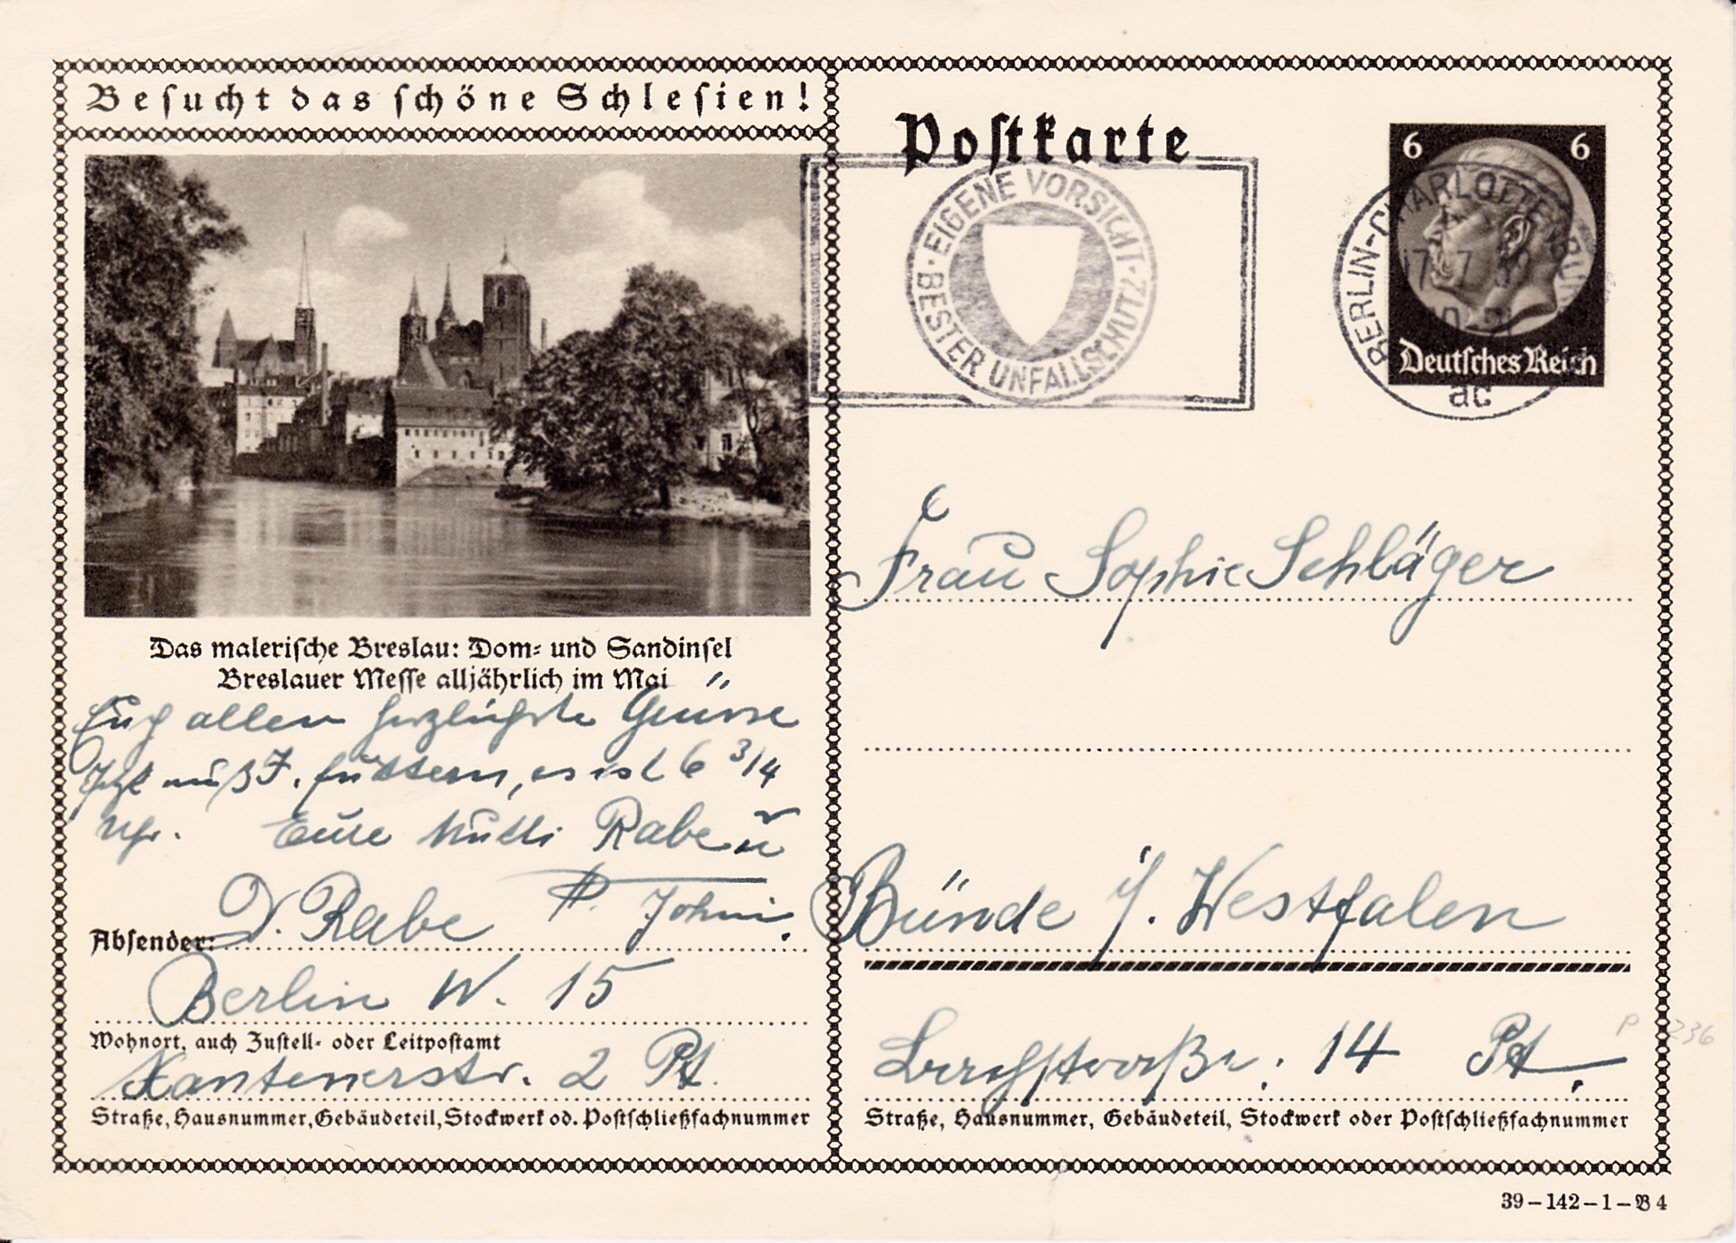 Besucht das schöne Schlesien!
Das malerische Breslau: Dom- und Sandinsel
Breslauer Messe alljährlich im Mai
Euch allen herzlichste Grüsse
Jetzt muß J. füttern, es ist 6 3/4
Uhr. Eure Mutti Rabe u
P. Johni.
Absender: D. Rabe
Berlin W. 15
Wohnort, auch Zustell- oder Leitpostamt
Xantenerstr. 2 Pt.
Straße, Hausnummer, Gebäudeteil, Stockwerk od. Postschließfachnummer
Postkarte
EIGENE VORSICHT · BESTER UNFALLSCHUTZ ·
6 6
Deutsches Reich
BERLIN-CHARLOTTENBURG
ac
Frau Sophie Schläger
Bünde i/. Westfalen
14 Pt.
Straße, Hausnummer, Gebäudeteil, Stockwerk oder Postschließfachnummer
P 236
39-142-1-B 4